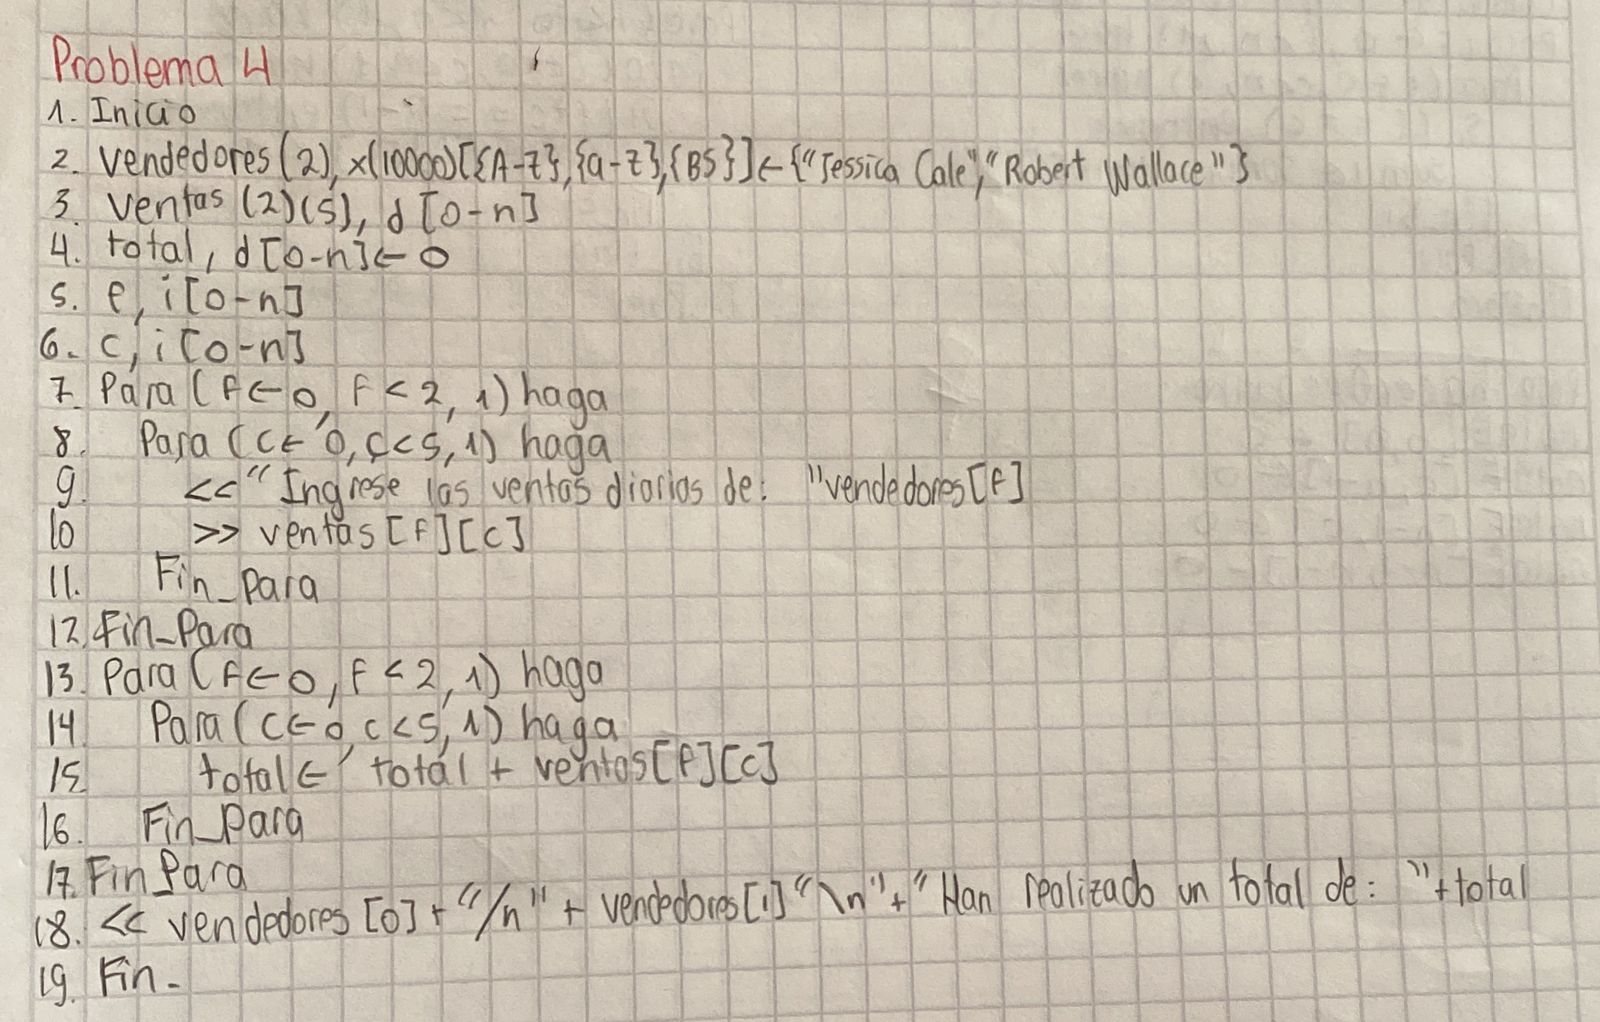 Problema 4
1. Inicio
2. vendedores (2), x(10000)[{A-Z},{a-z},{BS}]←{"Jessica Cale","Robert Wallace"}
3. ventas (2)(5), d [0-n]
4. total, d[0-n]← 0
5. f, i[0-n]
6. c, i[0-n]
7. Para (f←0, f < 2, 1) haga
8. Para (c← 0, c<5, 1) haga
9. << "Ingrese las ventas diarias de: "vendedores[f]
10 >> ventas [f][c]
11. Fin_para
12. Fin_Para
13. Para (f←0, f < 2, 1) haga
14 Para (c←0, c<5, 1) haga
15 total← total + ventas[f][c]
16. Fin_para
17. Fin_Para
18. << vendedores [0]+ "/n" + vendedores[1] "\n"+ "Han realizado un total de: "+total
19. Fin.